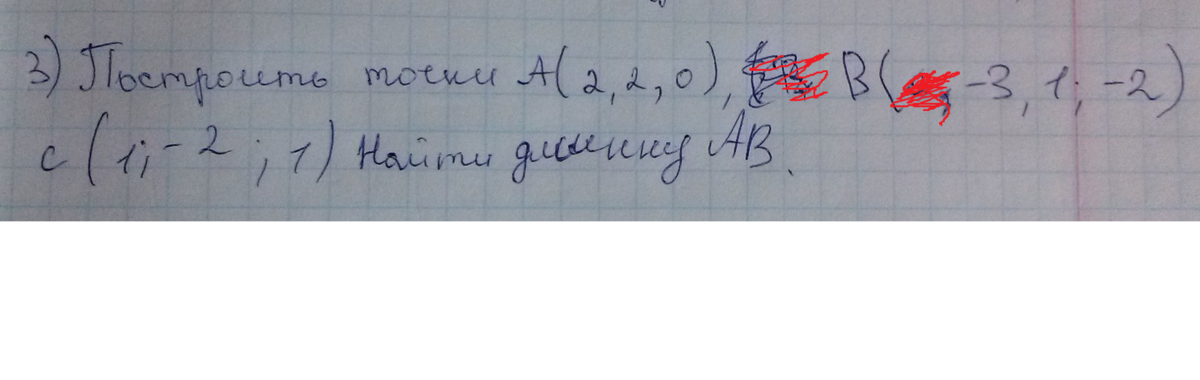 3) Построить точки A(2,2,0), B(-3,1;-2)
C (1;-2;1) Найти длинну AB.